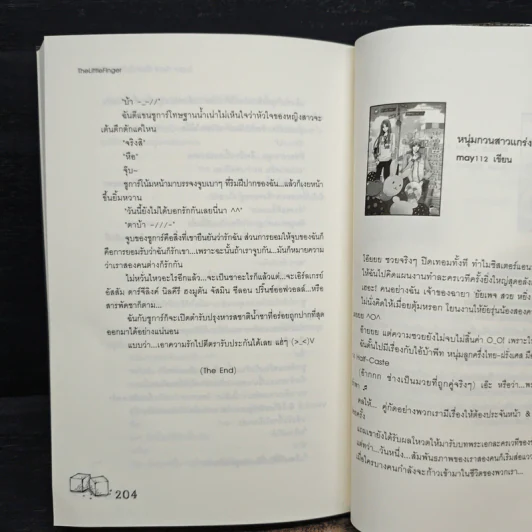 TheLittleFinger
"บ้า -_-//"
ฉันตีแขนชูการ์โทษฐานน้ำเน่าไม่เห็นใจว่าหัวใจของหญิงสาวจะ
เต้นตึกตักแค่ไหน
"จริงสิ"
"หือ"
จุ๊บ~
ชูการ์โน้มหน้ามาบรรจงจูบเบาๆ ที่ริมฝีปากของฉัน...แล้วก็เงยหน้า
ขึ้นยิ้มหวาน
"วันนี้ยังไม่ได้บอกรักกันเลยนี่นา ^^"
"ตาบ้า -///-"
จูบของชูการ์คือสิ่งที่เขายืนยันว่ารักฉัน ส่วนการยอมให้จูบของฉันก็
คือการยอมรับว่าฉันก็รักเขา...เพราะฉะนั้นถ้าเราจูบกัน...มันก็หมายความ
ว่าเราสองคนต่างก็รักกัน
ไม่หวั่นไหวอะไรอีกแล้ว...จะเป็นชาอะไรก็แล้วแต่...จะเอิร์ลเกรย์
อัสสัม ดาร์จีลิงค์ นิลคีรี อูงมูตัน จัสมิน ซีลอน ปริ๊นซ์ออฟเวลส์...หรือ
สารพัดชาก็ตาม...
ฉันกับชูการ์ก็จะเปิดตำรับปรุงหารสชาติน้ำชาที่อร่อยถูกปากที่สุด
ออกมาได้อย่างแน่นอน
แบบว่า...เอาความรักไปตีตรารับประกันได้เลย แฮ่ๆ (>_<)V
(The End)
204
หนุ่มกวนสาวแกร่ง
may112 เขียน
โอ้ยยย ซวยจริงๆ ปิดเทอมทั้งที ทำไมซีสเตอร์แอน
ให้ฉันไปคิดแผนงานทำละครเวทีครั้งยิ่งใหญ่สุดอลัง
เถอะ! คนอย่างฉัน เจ้าของฉายา
ไม่นั่งคิดให้เมื่อยตุ้มหรอก โยนงานให้ยัยรุ่นน้องสองค
^O^
อ้ายยย แต่ความซวยยังไม่จบไม่สิ้นค่า O_O! เพราะ
ฉันดั้นไปมีเรื่องกับไอ้บ้าพีท หนุ่มลูกครึ่งไทย-ฝรั่งเศส
Half-Caste
(อ๊ากกก ช่างเป็นมวยที่ถูกคู่จริงๆ) เอ๊ะ หรือว่า...
ดลให้... คู่กัดอย่างพวกเรามีเรื่องให้ต้องประจันหน้า &
แถมเขายังได้รับผลโหวตให้มารับบทพระเอกละครเวทีของ
แต่ทว่า...วันหนึ่ง...สัมพันธภาพของเราสองคนก็เริ่มส่อแวว
เมื่อใครบางคนกำลังจะก้าวเข้ามาในชีวิตของพวกเรา...